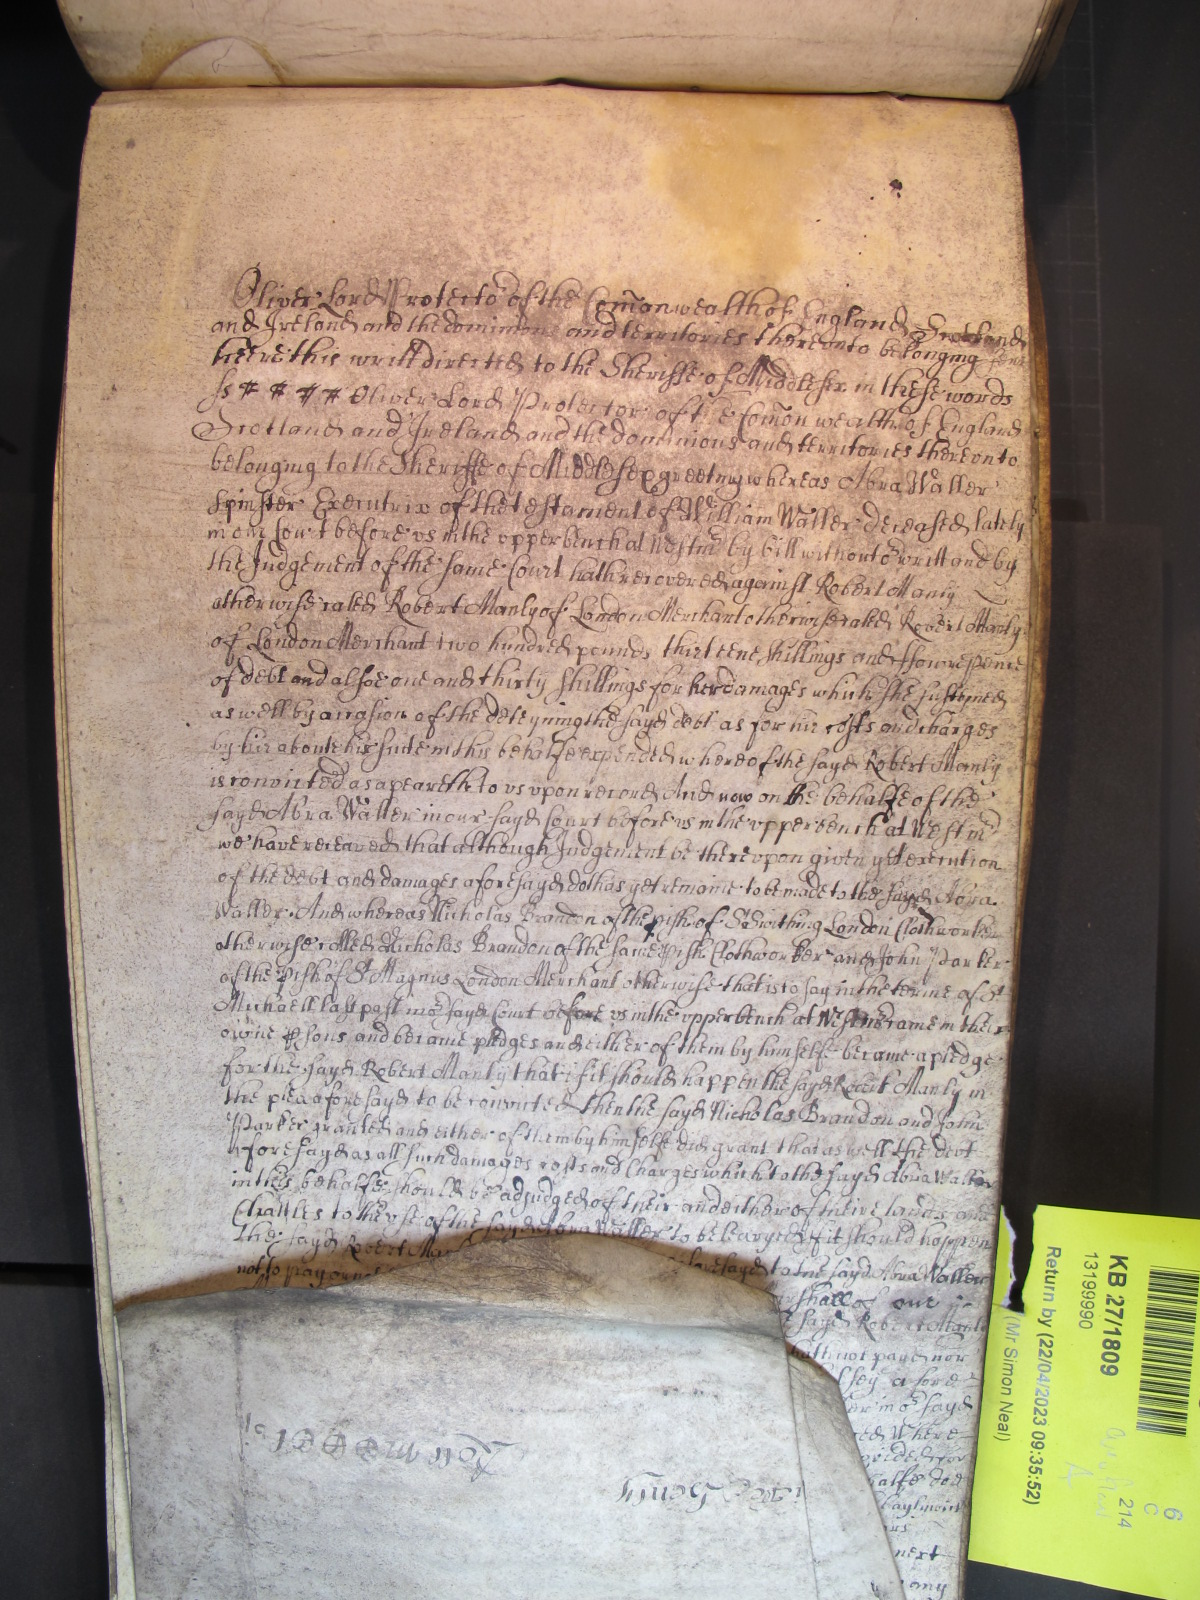 Oliver Lord Protector of the Comon wealth of England Scotland
and Ireland and the dominions and territories thereunto belonging sent
heere this writt directed to the Sheriffe of Middlesex in these words
ss Oliver Lord Protector of the Comon wealth of England
Scotland and Ireland and the dominions and territories thereunto
belonging to the Sheriffe of Middlesex greeting whereas Abra Waller
Spinster Executrix of the testament of William Waller deceased lately
in our Court before us in the upper bench at Westmr by bill without or writt and by
the Judgement of the same Court hath recovered against Robert Manly
otherwise called Robert Manly of London Merchant otherwise called Robert Manly
of London Merchant two hundred pounds thirteene shillings and ffowre pence
of debt and alsoe one and thirty shillings for her damages which she susteined
as well by occasion of the deteyning the sayd debt as for hir costs and charges
by hir aboute hir suite in this behalfe expended whereof the sayd Robert Manly
is convicted as apeareth to us upon record And now on the behalfe of the
sayd Abra Waller in our sayd Court before us in the upper bench at Westmr
we have receaved that although Judgement be thereupon given yet execution
of the debt and damages aforesayd doth as yet remaine to be made to the sayd Abra
Waller And whereas Nicholas Brandon of the pish of St Swithins London Clothworker
otherwise called Nicholas Brandon of the same pish Clothworker and John Parker
of the pish of St Magnus London Merchant otherwise that is to say in the terme of St
Michaell last past in or sayd Court before us in the upper bench at Westmr came in their
owne psons and became pledges and either of them by himselfe became a pledge
for the sayd Robert Manly that if it should happen the sayd Robert Manly in
the plea aforesayd to be convicted then the sayd Nicholas Brandon and John
Parker granted and either of them by himselfe did grant that as well the debt
aforesayd as all such damages costs and Charges which to the sayd Abra Waller
in this behalfe should be adjudged of their and either of theire lands and
Chattles to the use of the sayd Abra Waller to be leavyed if it should happen
the sayd Robert Man
not to pay or not aforesayd to the sayd Abra Waller
arshall of our
sayd Robert Manly
hath not payd nor
afore
in or sayd
Where
provided for
halfe doe
baylywick
next
any
KB 27/1809
13199990
Return by (22/04/2023 09:35:52)
(Mr Simon Neal)
6
C
214